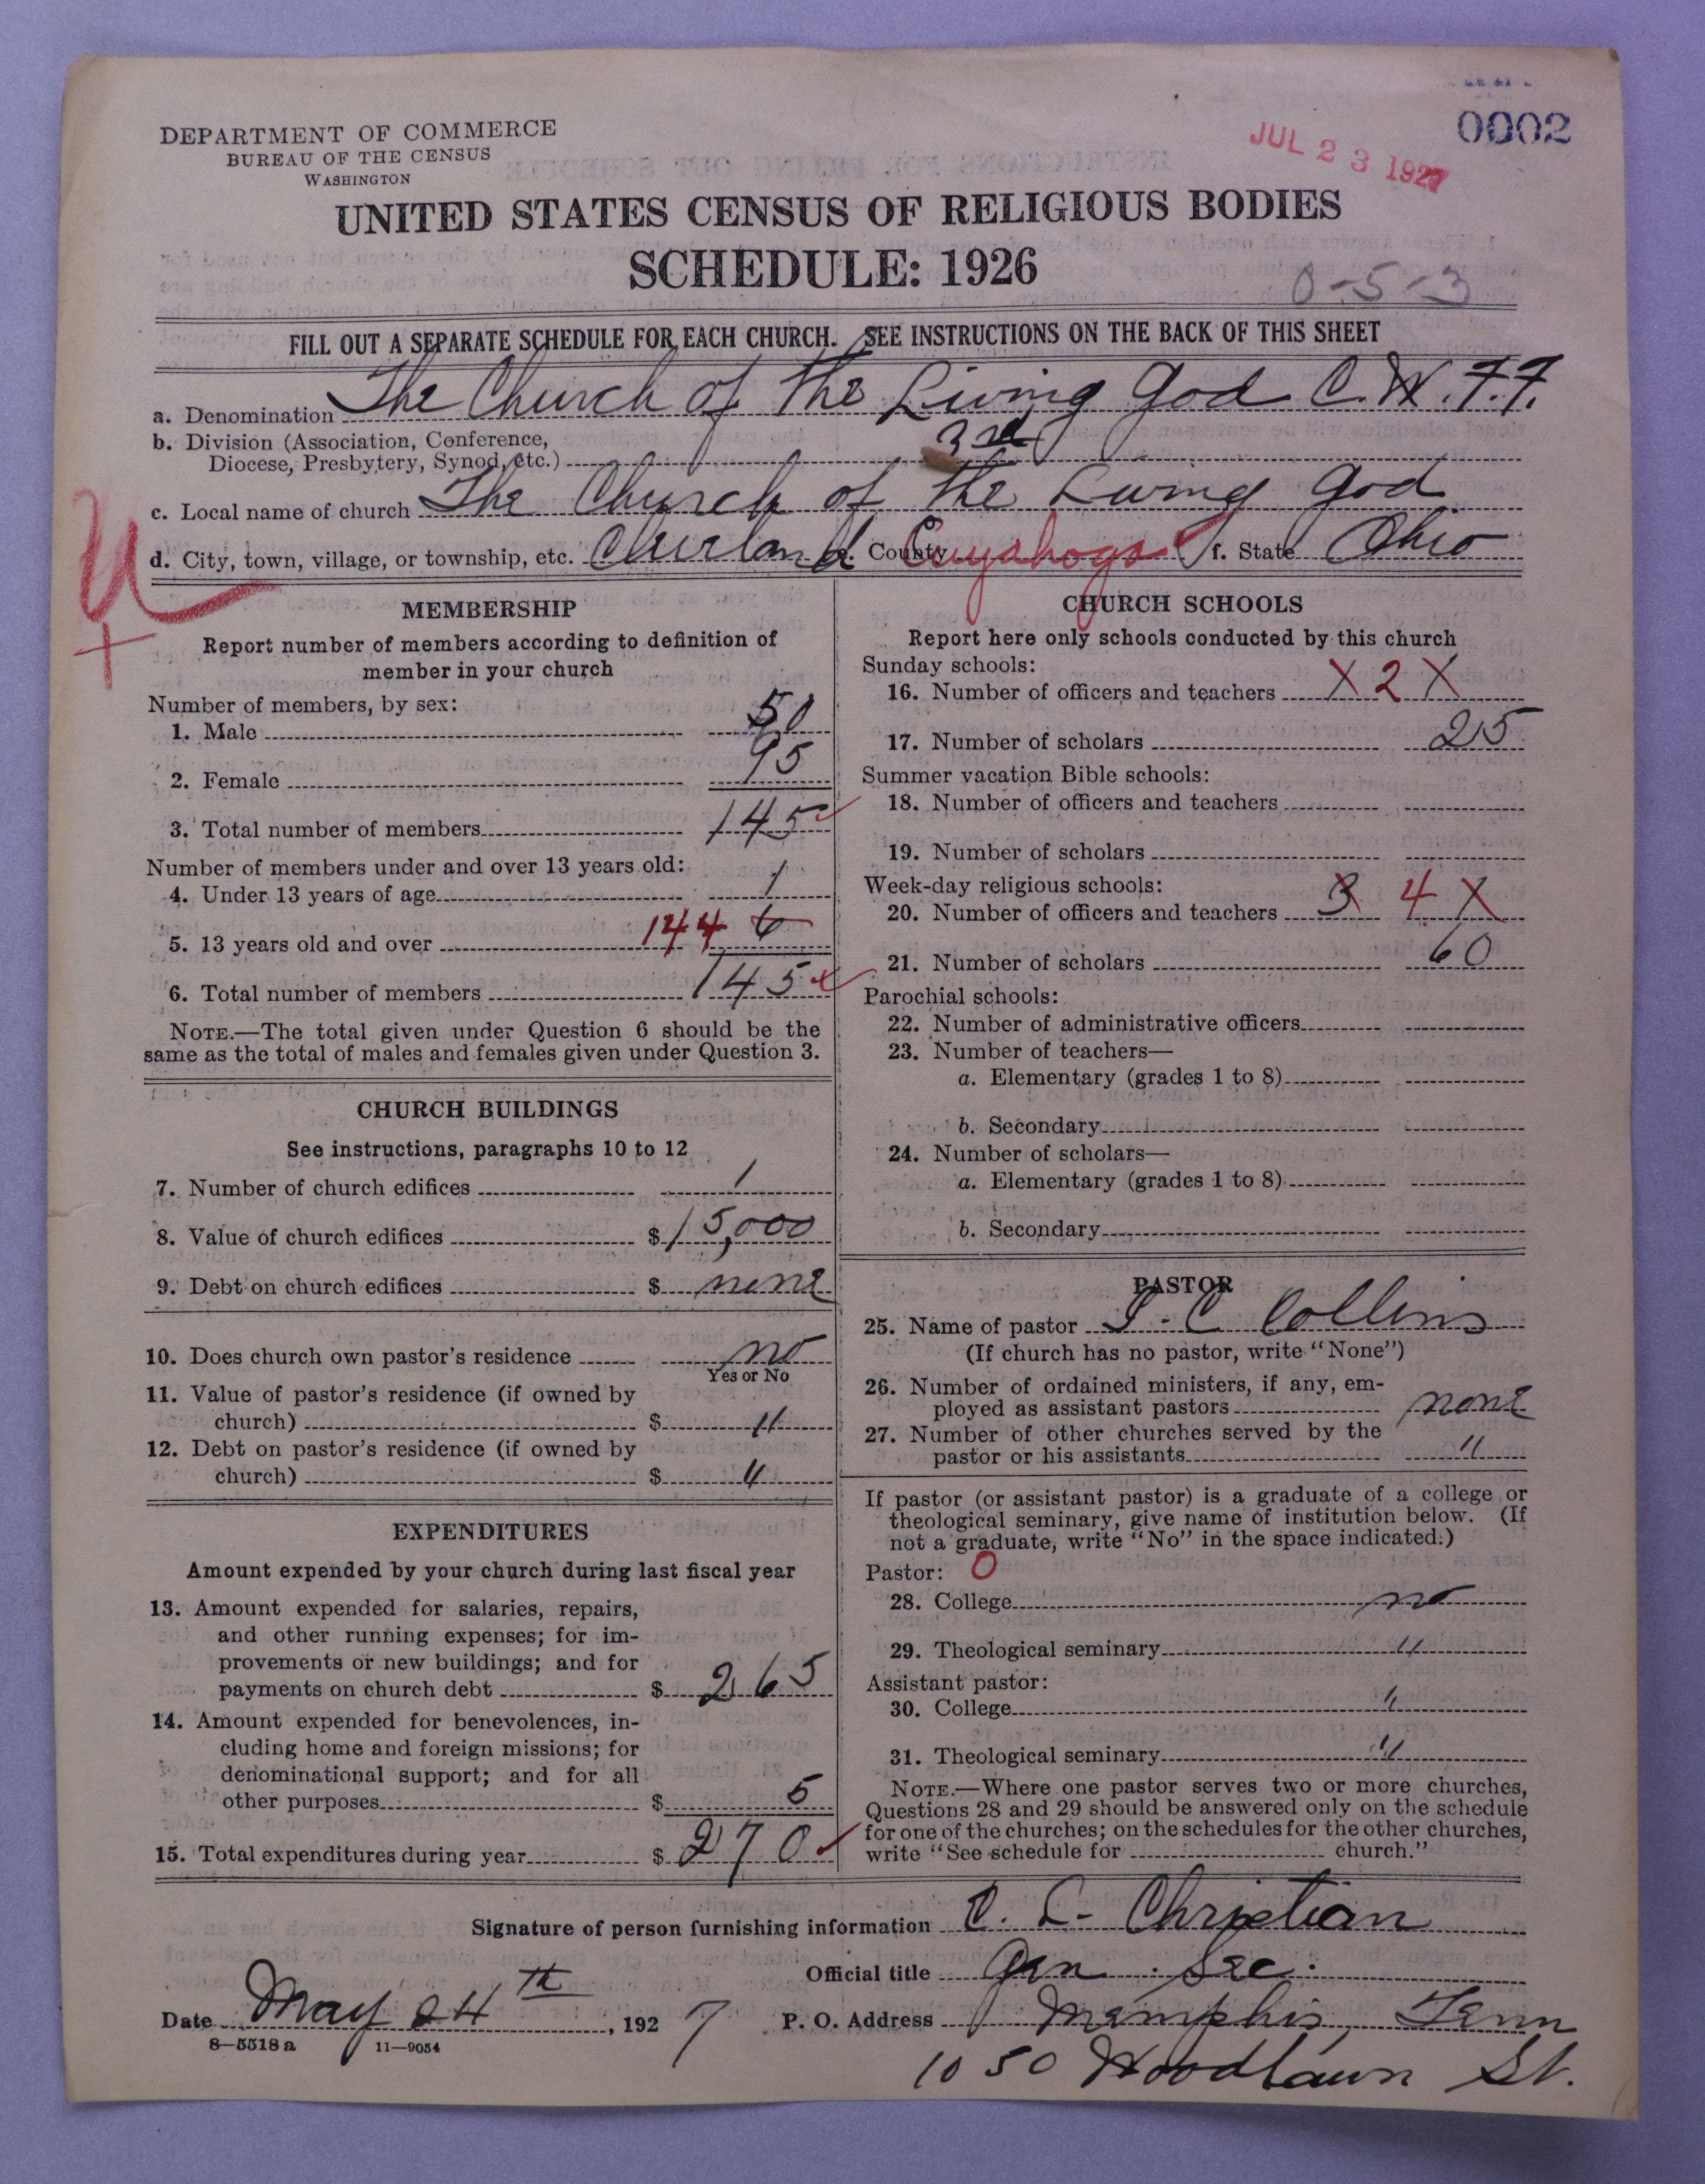 0002
JUL 23 1927
DEPARTMENT OF COMMERCE
BUREAU OF THE CENSUS
WASHINGTON
UNITED STATES CENSUS OF RELIGIOUS BODIES
SCHEDULE: 1926
0-5-3
FILL OUT A SEPARATE SCHEDULE FOR EACH CHURCH. SEE INSTRUCTIONS ON THE BACK OF THIS SHEET
a. Denomination The Church of the Living God C.W.F.F.
b. Division (Association, Conference,
Diocese, Presbytery, Synod, etc.) 3rd
c. Local name of church The Church of the Living God
d. City, town, village, or township, etc. Cleveland e. County Cuyahoga f. State Ohio
U
+
MEMBERSHIP
Report number of members according to definition of
member in your church
Number of members, by sex:
1. Male 50
2. Female 95
3. Total number of members 145
Number of members under and over 13 years old:
4. Under 13 years of age 1
5. 13 years old and over 144 6
6. Total number of members 145
NOTE.—The total given under Question 6 should be the
same as the total of males and females given under Question 3.
CHURCH BUILDINGS
See instructions, paragraphs 10 to 12
7. Number of church edifices 1
8. Value of church edifices $15,000
9. Debt on church edifices $ none
10. Does church own pastor's residence no
Yes or No
11. Value of pastor's residence (if owned by
church) $ "
12. Debt on pastor's residence (if owned by
church) $ "
EXPENDITURES
Amount expended by your church during last fiscal year
13. Amount expended for salaries, repairs,
and other running expenses; for im-
provements or new buildings; and for
payments on church debt $ 265
14. Amount expended for benevolences, in-
cluding home and foreign missions; for
denominational support; and for all
other purposes $ 5
15. Total expenditures during year $ 270
CHURCH SCHOOLS
Report here only schools conducted by this church
Sunday schools:
16. Number of officers and teachers X 2 X
17. Number of scholars 25
Summer vacation Bible schools:
18. Number of officers and teachers
19. Number of scholars
Week-day religious schools:
20. Number of officers and teachers 3 4 X
21. Number of scholars 60
Parochial schools:
22. Number of administrative officers
23. Number of teachers—
a. Elementary (grades 1 to 8)
b. Secondary
24. Number of scholars—
a. Elementary (grades 1 to 8)
b. Secondary
PASTOR
25. Name of pastor C Collins
(If church has no pastor, write "None")
26. Number of ordained ministers, if any, em-
ployed as assistant pastors none
27. Number of other churches served by the
pastor or his assistants "
If pastor (or assistant pastor) is a graduate of a college or
theological seminary, give name of institution below. (If
not a graduate, write "No" in the space indicated.)
Pastor: 0
28. College no
29. Theological seminary "
Assistant pastor:
30. College "
31. Theological seminary "
NOTE.—Where one pastor serves two or more churches,
Questions 28 and 29 should be answered only on the schedule
for one of the churches; on the schedules for the other churches,
write "See schedule for church."
Signature of person furnishing information C. L. Christian
Official title Gen. Sec.
Date May 24th, 1927 P. O. Address Memphis, Tenn
8—5518a 11—9054
1050 Woodlawn St.